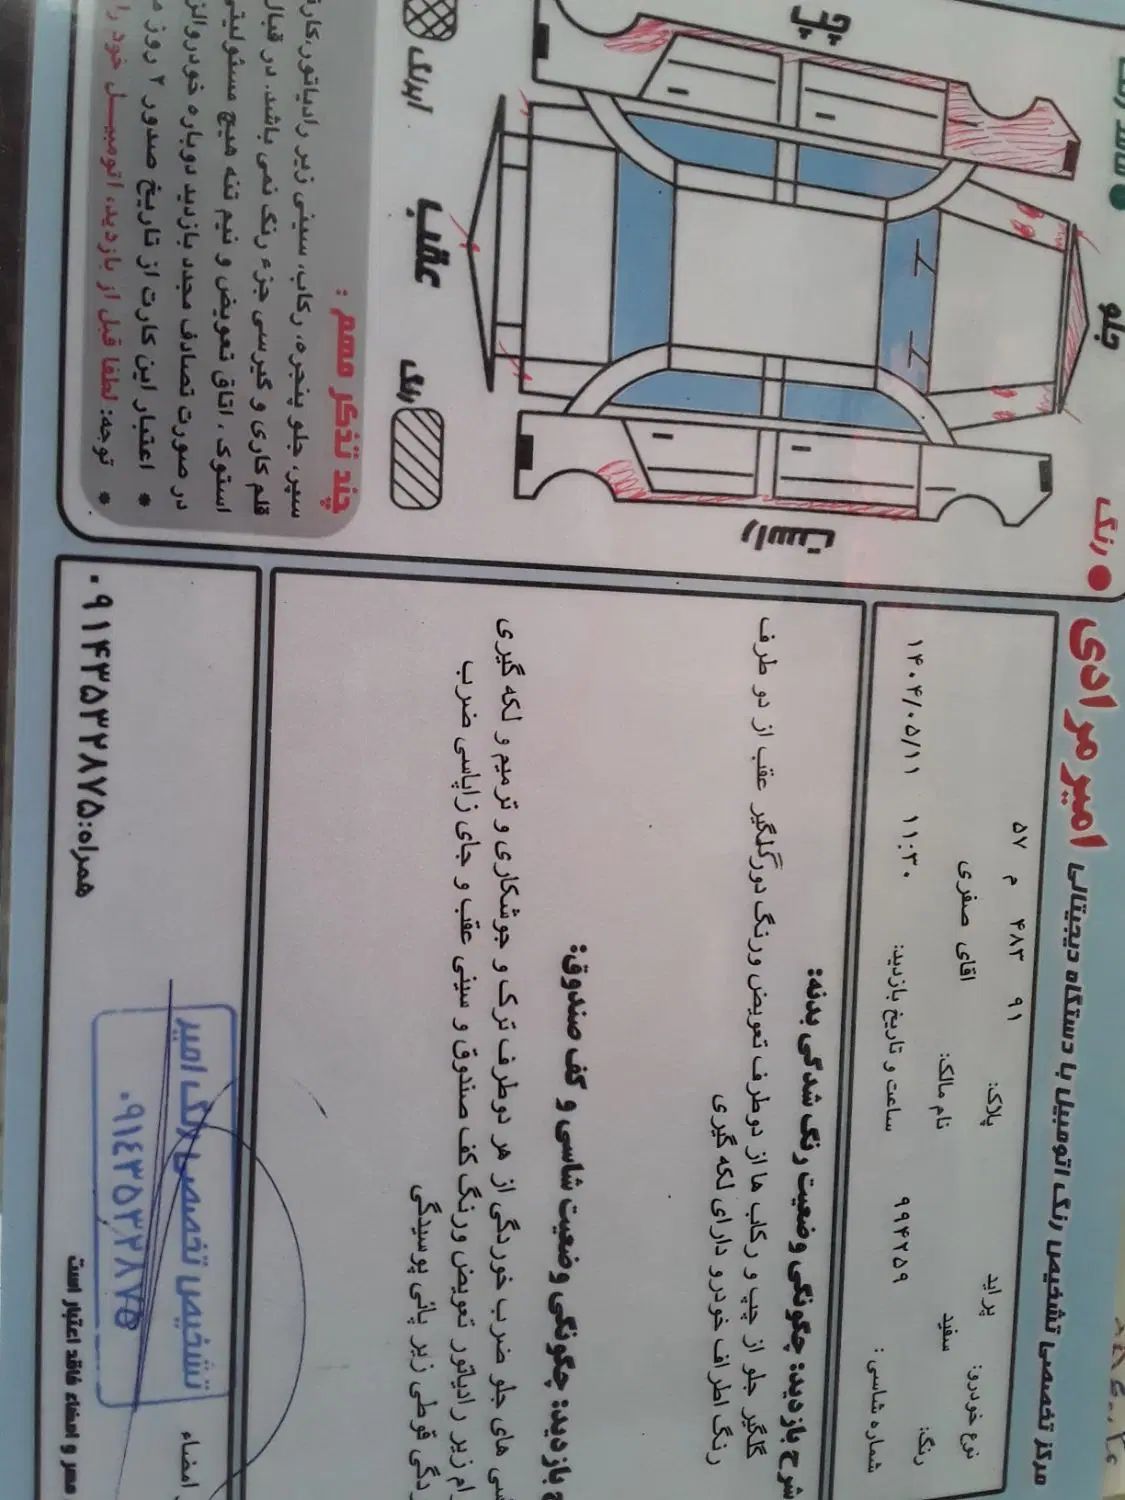 مرکز تخصصی تشخیص رنگ اتومبیل با دستگاه دیجیتالی امیر مرادی
نوع خودرو: پراید پلاک: ۹۱ ۴۸۳ م ۵۷
رنگ: سفید نام مالک: اقای صفری
شماره شاسی : ۹۹۴۲۵۹ ساعت و تاریخ بازدید: ۱۱:۳۰ ۱۴۰۴/۰۵/۱۱
شرح بازدید: چگونگی وضعیت رنگ شدگی بدنه:
گلگیر جلو از چپ و رکاب ها از دوطرف تعویض ورنگ دورگلگیر عقب از دو طرف
رنگ اطراف خودرو دارای لکه گیری
بازدید: چگونگی وضعیت شاسی و کف صندوق:
های جلو ضرب خوردگی از هر دوطرف ترک و جوشکاری و ترمیم و لکه گیری
رام زیر رادیاتور تعویض ورنگ کف صندوق و سینی عقب و جای زاپاسی ضرب
قوطی زیر پائی پوسیدگی
امضاء
تشخیص تخصصی رنگ امیر
۰۹۱۴۳۵۳۲۸۷۵
همراه:۰۹۱۴۳۵۳۲۸۷۵
مهر و امضاء فاقد اعتبار است
رنگ
جلو
راست
عقب
رنگ
آبرنگ
چند تذکر مهم :
سپر، جلو پنجره، رکاب، سینی زیر رادیاتور،
قلم کاری و گیرسی جزء رنگ نمی باشد. در قبال
استوک ، اتاق تعویض و نیم تنه هیچ مسئولیتی
در صورت تصادف مجدد بازدید دوباره خودرو
* اعتبار این کارت از تاریخ صدور ۲ روز
* توجه: لطفا قبل از بازدید، اتومبیل خود را